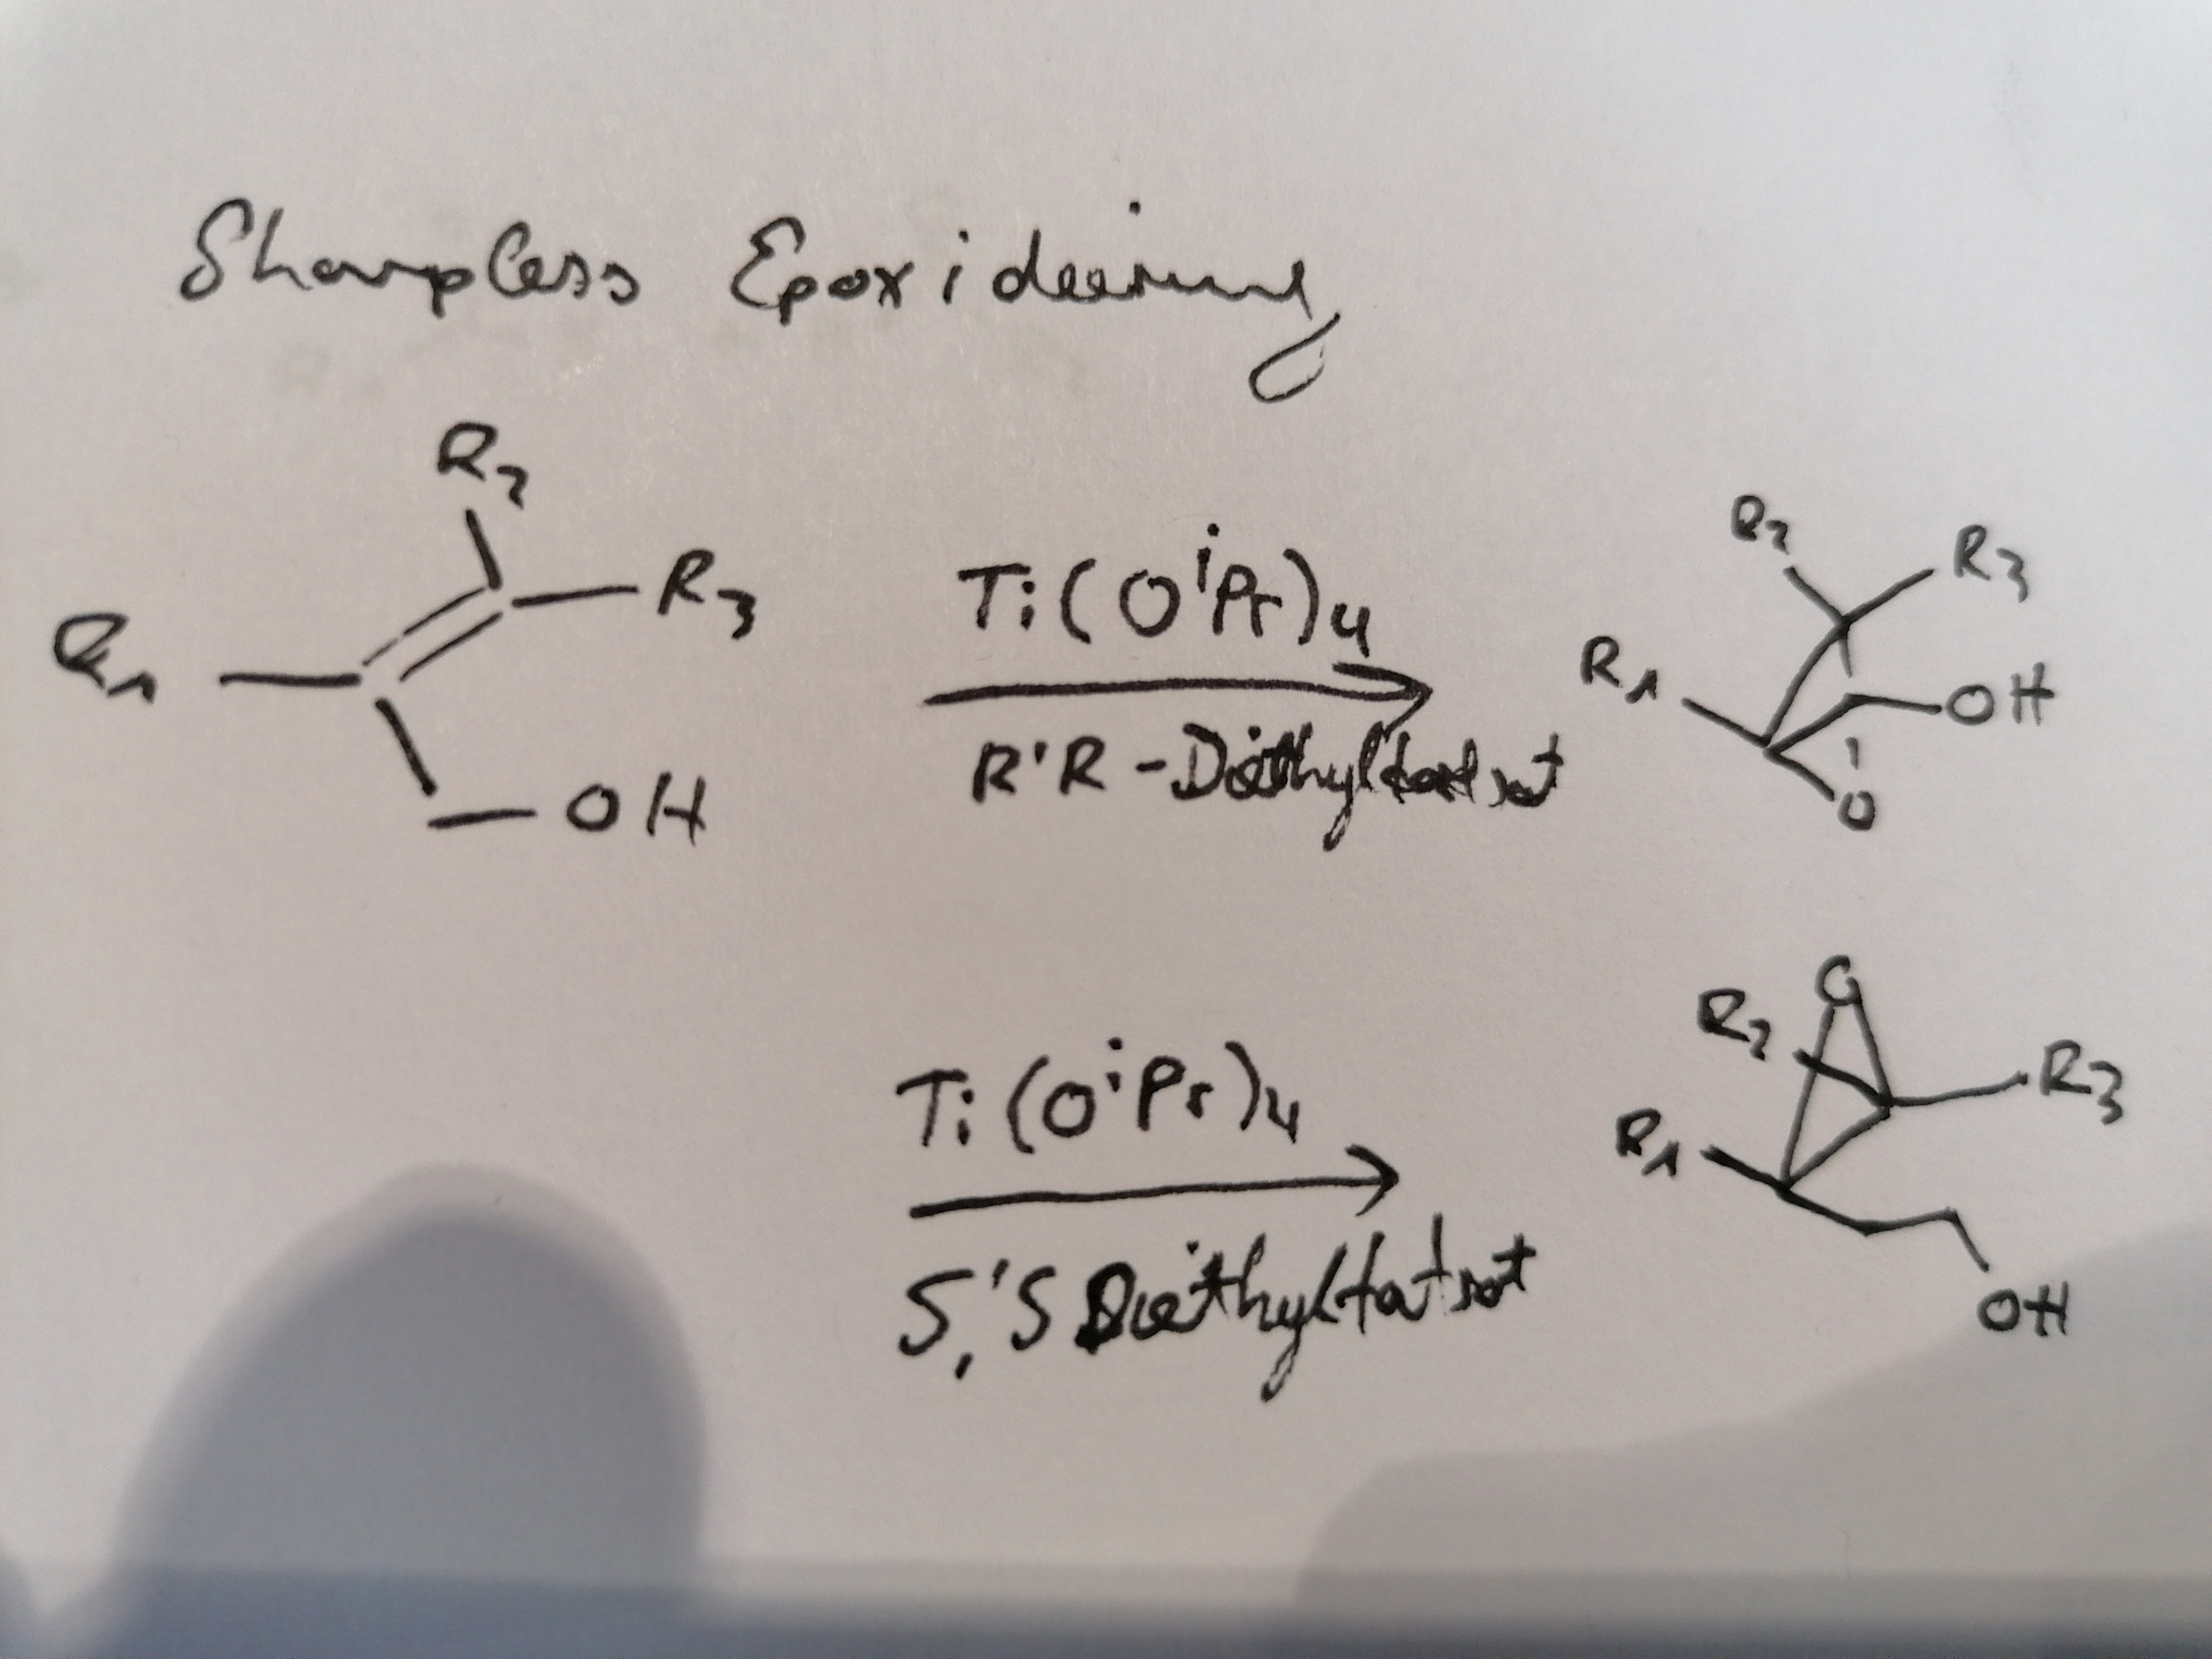 Sharpless Epoxidierung
R2
R1
R3
OH
Ti(OiPr)4
R'R-Diethyltatrat
R2
R3
R1
OH
O
Ti(OiPr)4
S,'S Diethyltatrat
O
R2
R3
R1
OH